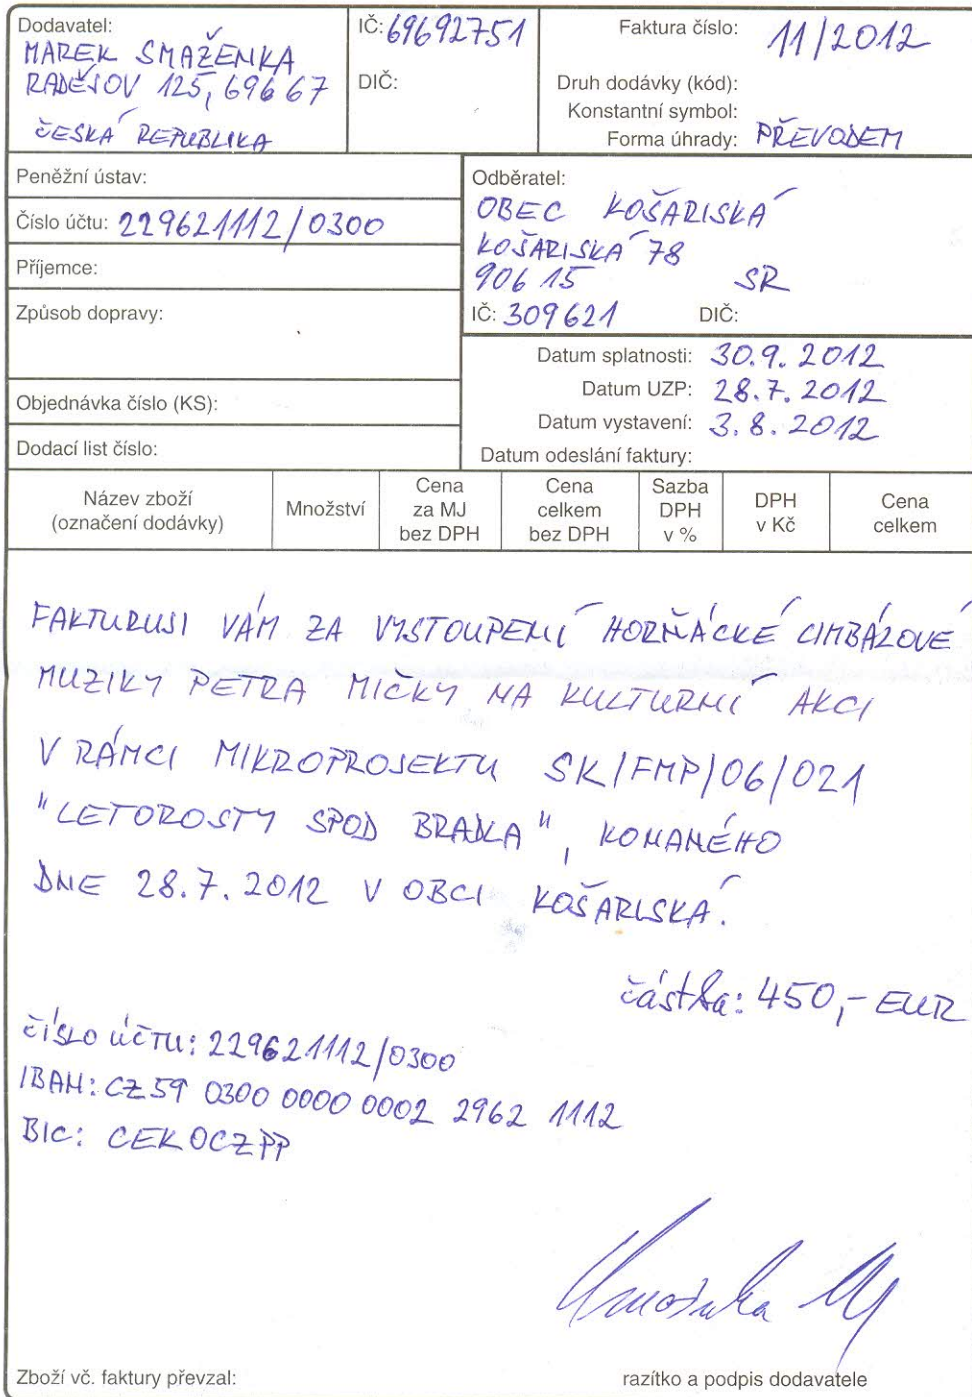 Dodavatel:
MAREK SMAŽENKA
RADĚJOV 125, 696 67
ČESKÁ REPUBLIKA
IČ: 69692751
DIČ:
Faktura číslo: 11/2012
Druh dodávky (kód):
Konstantní symbol:
Forma úhrady: PŘEVODEM
Peněžní ústav:
Číslo účtu: 229621112/0300
Příjemce:
Způsob dopravy:
Objednávka číslo (KS):
Dodací list číslo:
Odběratel:
OBEC KOŠARISKÁ
KOŠARISKÁ 78
906 15 SR
IČ: 309621 DIČ:
Datum splatnosti: 30.9. 2012
Datum UZP: 28.7. 2012
Datum vystavení: 3.8. 2012
Datum odeslání faktury:
Název zboží
(označení dodávky)
Množství
Cena
za MJ
bez DPH
Cena
celkem
bez DPH
Sazba
DPH
v %
DPH
v Kč
Cena
celkem
FAKTURUJI VÁM ZA VYSTOUPENÍ HORŇÁCKÉ CIMBÁLOVÉ
MUZIKY PETRA MIČKY NA KULTURNÍ AKCI
V RÁMCI MIKROPROJEKTU SK/FMP/06/021
"LETOROSTY SPOD BRADLA", KONANÉHO
DNE 28.7. 2012 V OBCI KOŠARISKÁ.
částka: 450,- EUR
ČÍSLO ÚČTU: 229621112/0300
IBAN: CZ59 0300 0000 0002 2962 1112
BIC: CEKOCZPP
Zboží vč. faktury převzal:
razítko a podpis dodavatele